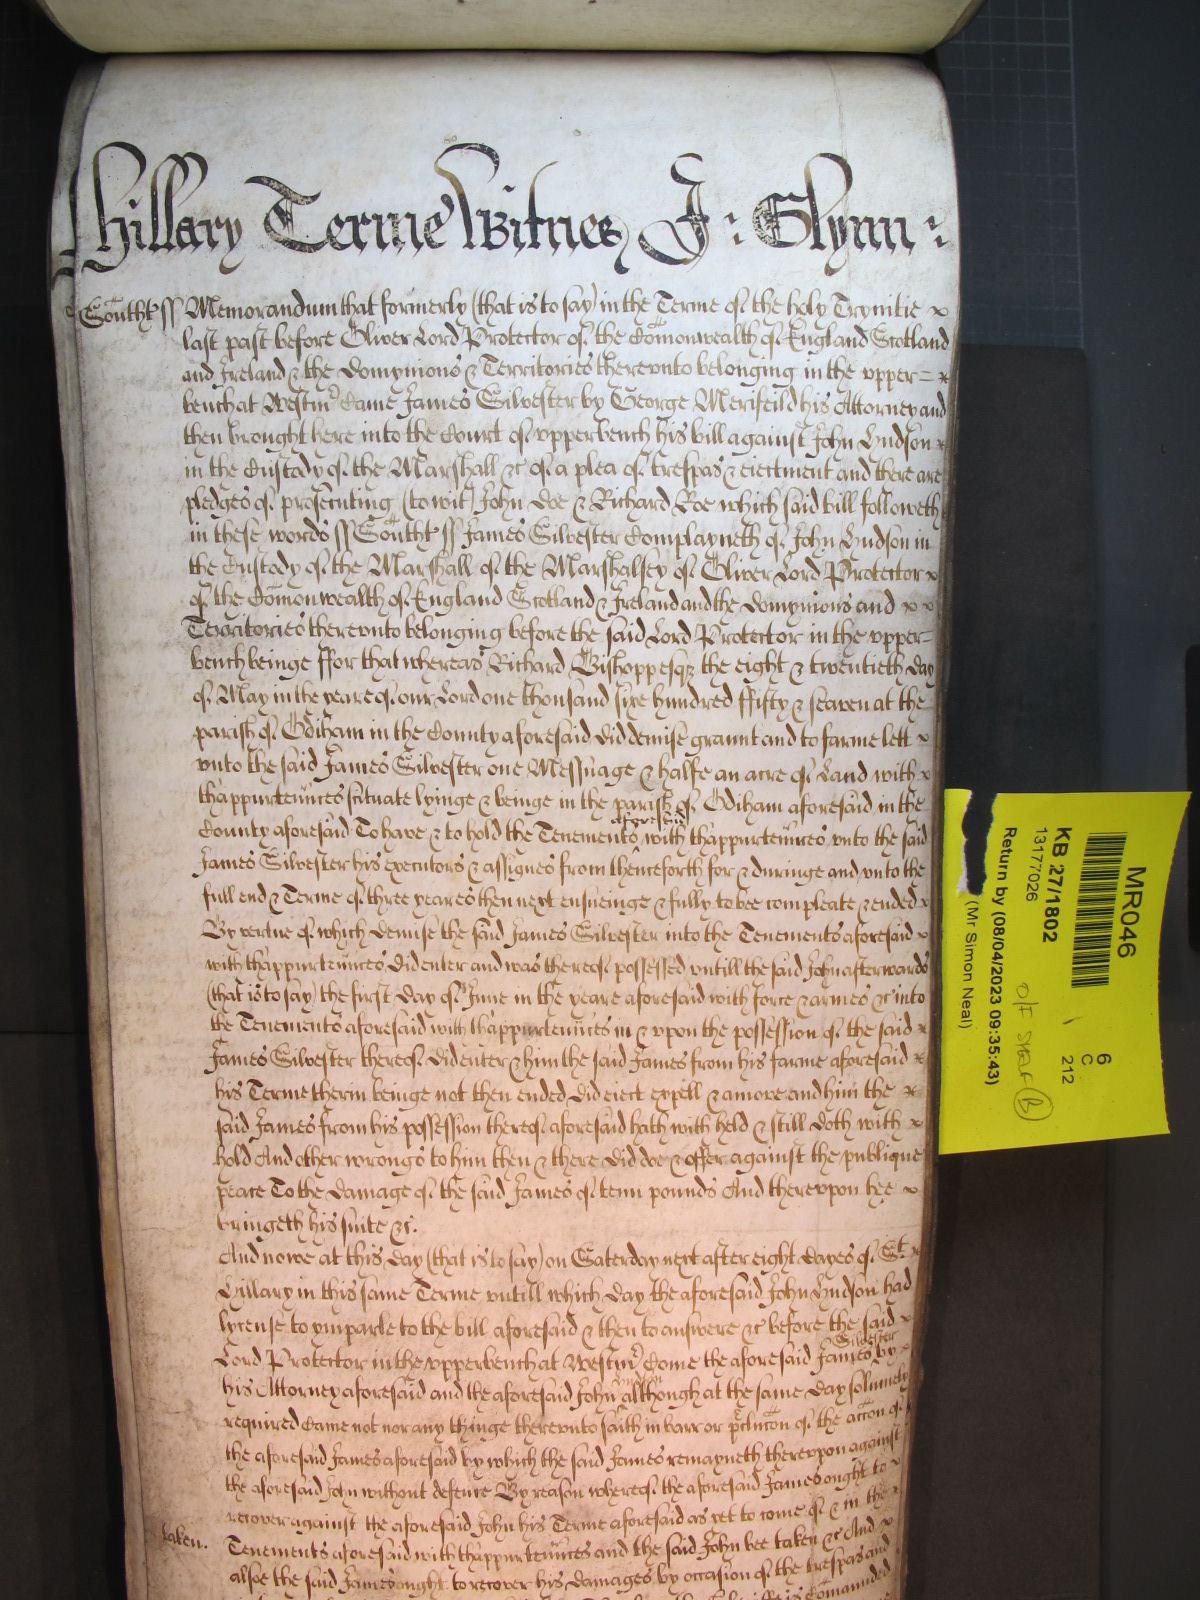 Hillary Terme Witnes J: Glynn:
Southt ss Memorandum that formerly (that is to say) in the Terme of the holy Trynitie
last past before Oliver Lord Protector of the Com̄onwealth of England Scotland
and Ireland & the Domynions & Territories therevnto belonging in the vpper=
bench at Westmr Came James Silvester by George Merifeild his Attorney and
then brought here into the Court of vpperbench his bill against John Hudson
in the Custody of the Marshall &c of a plea of trespas & eiectment and there are
pledges of prosecuting (to wit) John Doe & Richard Roe which said bill followeth
in these words ss Southt ss James Silvester Complayneth of John Hudson in
the Custody of the Marshall of the Marshalsey of Oliver Lord Protector
of the Com̄onwealth of England Scotland & Ireland and the Domynions and
Territories therevnto belonging before the said Lord Protector in the vpper=
bench beinge ffor that whereas Richard Bishopp esqr the eight & twentieth day
of May in the yeare of our Lord one thousand sixe hundred ffifty & seaven at the
parish of Odiham in the County aforesaid did demise graunt and to farme lett
vnto the said James Silvester one Messuage & halfe an acre of Land with
thappurten̄nces scituate lyinge & beinge in the parish of Odiham aforesaid in the
County aforesaid To have & to hold the Tenements aforesaid with thappurten̄nces vnto the said
James Silvester his executors & assignes from thenceforth for & duringe and vnto the
full end & Terme of three yeares then next ensueinge & fully to bee compleate & ended
By vertue of which demise the said James Silvester into the Tenements aforesaid
with thappurten̄nces did enter and was thereof possessed vntill the said John afterwards
(that is to say) the first day of June in the yeare aforesaid with force & armes &c into
the Tenements aforesaid with thappurten̄nces in & vpon the possession of the said
James Silvester thereof did enter & him the said James from his farme aforesaid
his Terme therin beinge not then ended did eiect expell & amove and him the
said James from his possession thereof aforesaid hath with held & still doth with
hold And other wrongs to him then & there did doe & offer against the publique
peace To the damage of the said James of tenn pounds And therevpon hee
bringeth his suite &c.
And nowe at this day (that is to say) on Saterday next after eight dayes of St
Hillary in this same Terme vntill which day the aforesaid John Hudson had
lycense to ymparle to the bill aforesaid & then to answere &c before the said
Lord Protector in the vpperbench at Westmr Come the aforesaid James Silvester by
his Attorney aforesaid and the aforesaid John Hudson although at the same day solemnely
required Came not nor any thinge therevnto saith in barr or p̄clucon of the acc̄on of
the aforesaid James aforesaid by which the said James remayneth therevpon against
the aforesaid John without defence By reason whereof the aforesaid James ought to
recover against the aforesaid John his Terme aforesaid as yet to come of & in the
taken. Tenements aforesaid with thappurten̄nces and the said John bee taken &c And
alsoe the said James ought to recover his damages by occasion of the trespas and
is Com̄anded
MR046
6
C
212
KB 27/1802
13177026
Return by (08/04/2023 09:35:43)
(Mr Simon Neal)